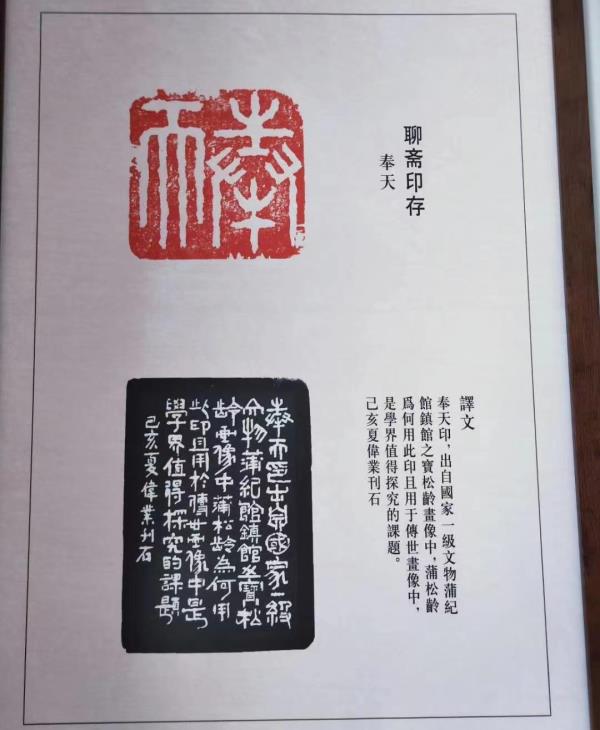 聊斋印存
奉天
奉天
譯文
奉天印，出自國家一級文物蒲紀
館鎮館之寶松齡畫像中，蒲松齡
爲何用此印且用于傳世畫像中，
是學界值得探究的課題。
己亥夏偉業刊石
奉天印出自國家一級
文物蒲紀館鎮館之寶松
龄畫像中蒲松龄為何用
此印且用於傳世畫像中是
學界值得探究的課題
己亥夏偉業刊石